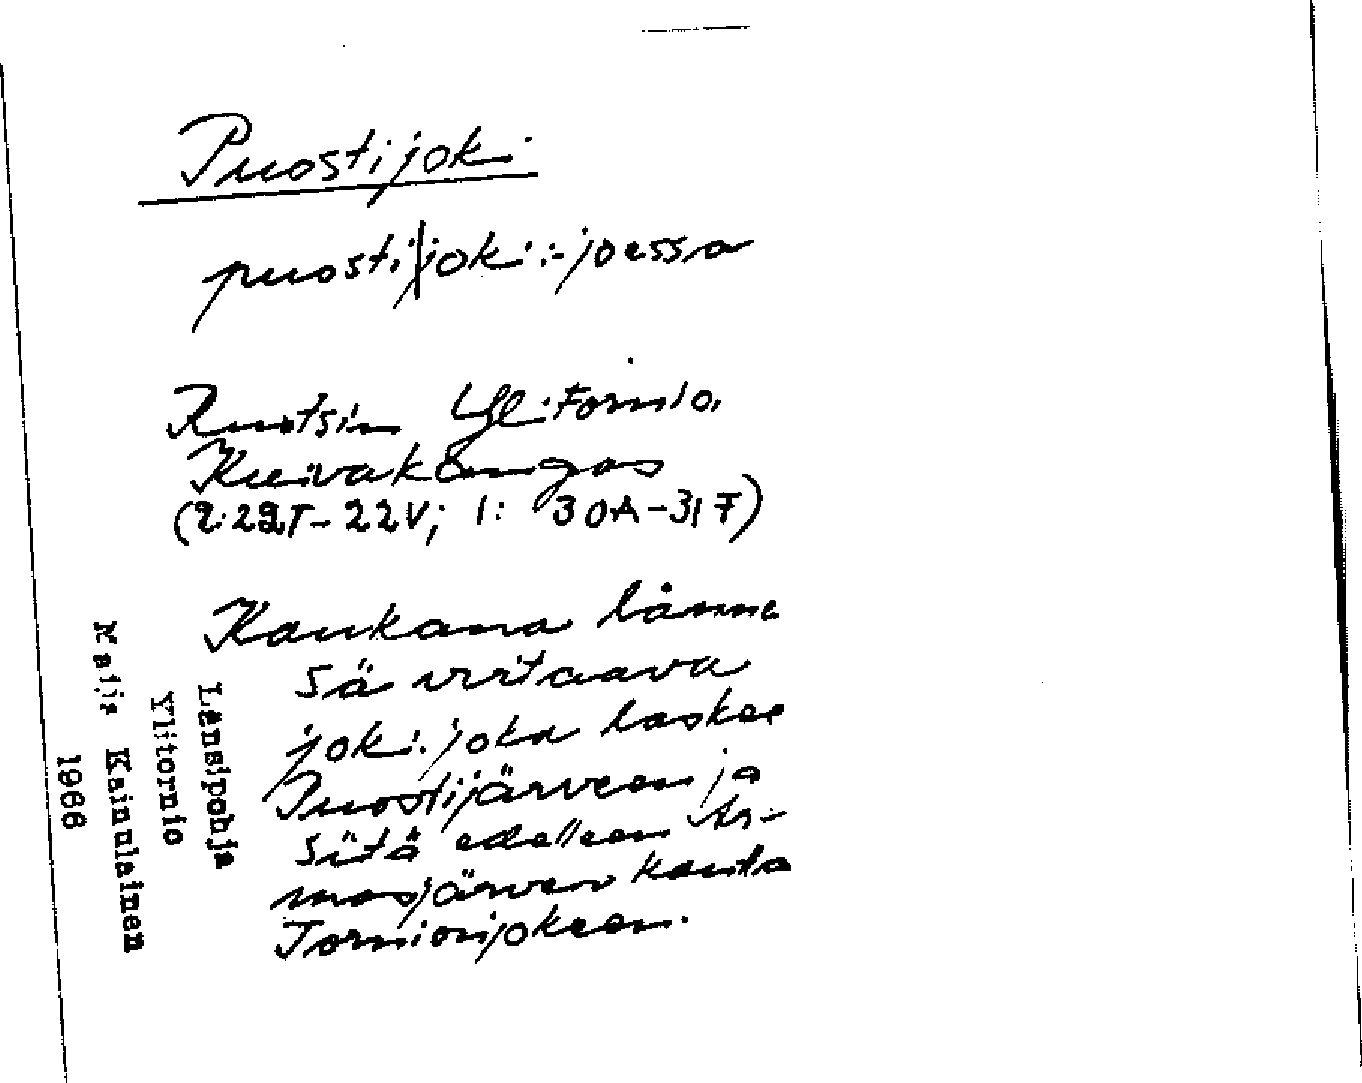 Puostijoki
puosti|joki: -joessa
Ruotsin Ylitornio,
Kuivakangas
(2: 22T-22V; 1: 30A-31F)
Kaukana länne
sä virtaava
joki. joka laskee
Puostijärveen ja
siitä edelleen Ar-
masjärven kautta
Tornionjokeen.
Länsipohja
Ylitornio
Maija Kainulainen
1966